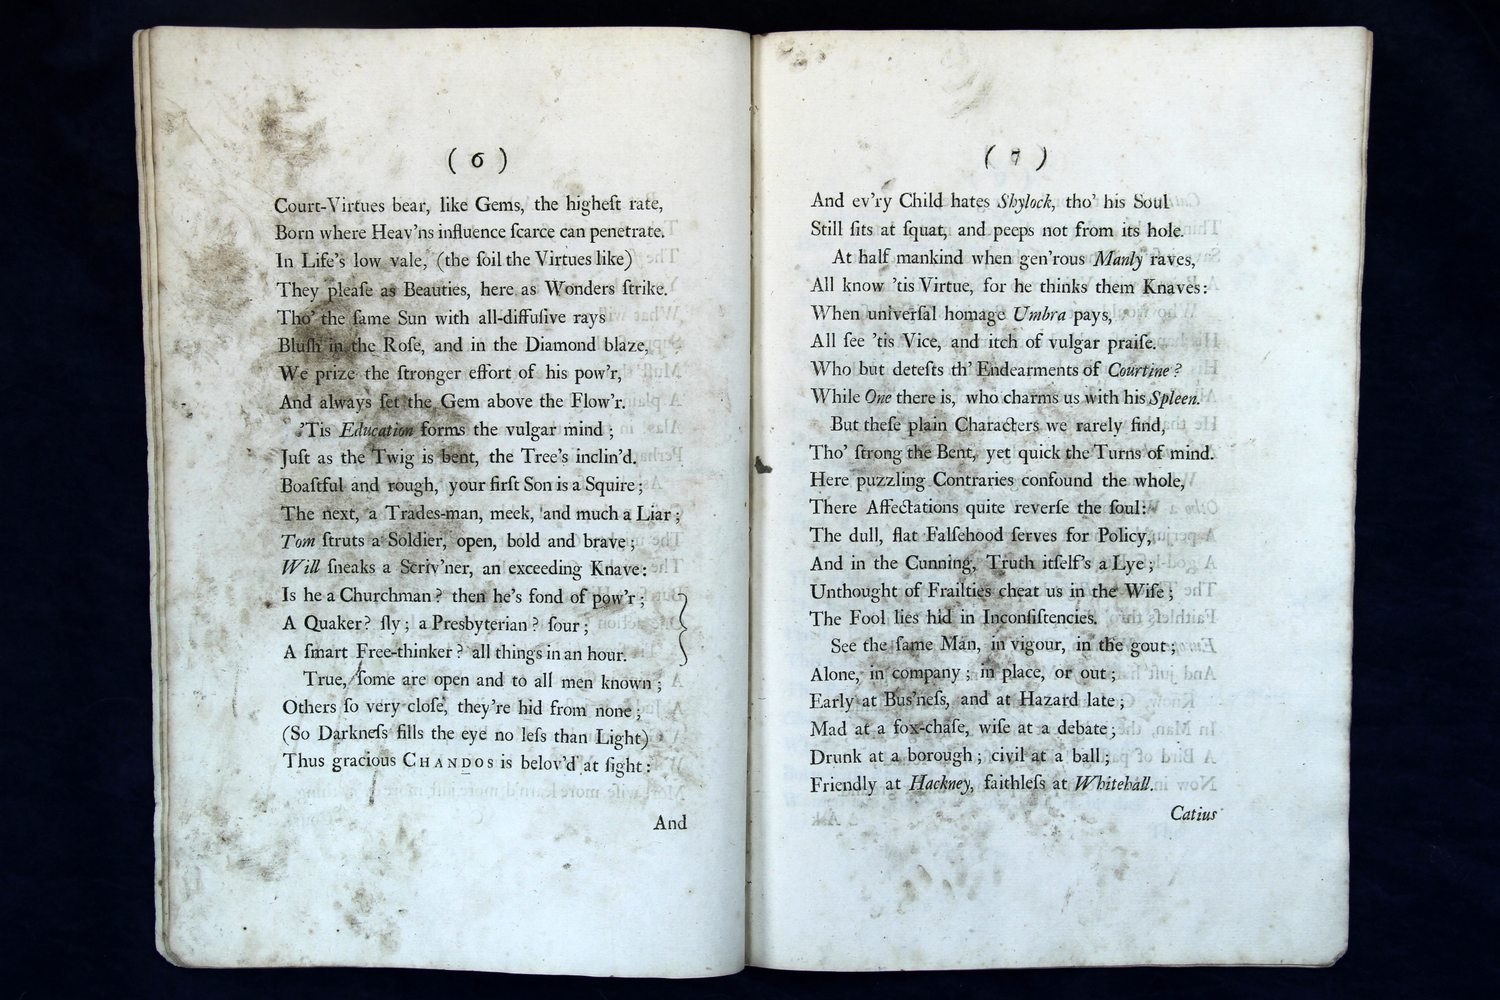 ( 6 )
Court-Virtues bear, like Gems, the higheſt rate,
Born where Heav'ns influence ſcarce can penetrate.
In Life's low vale, (the ſoil the Virtues like)
They pleaſe as Beauties, here as Wonders ſtrike.
Tho' the ſame Sun with all-diffuſive rays
Bluſh in the Roſe, and in the Diamond blaze,
We prize the ſtronger effort of his pow'r,
And always ſet the Gem above the Flow'r.
'Tis Education forms the vulgar mind ;
Juſt as the Twig is bent, the Tree's inclin'd.
Boaſtful and rough, your firſt Son is a Squire ;
The next, a Trades-man, meek, and much a Liar ;
Tom ſtruts a Soldier, open, bold and brave ;
Will ſneaks a Scriv'ner, an exceeding Knave :
Is he a Churchman ? then he's fond of pow'r ;
A Quaker ? ſly ; a Presbyterian ? ſour ;
A ſmart Free-thinker ? all things in an hour.
True, ſome are open and to all men known ;
Others ſo very cloſe, they're hid from none ;
(So Darkneſs fills the eye no leſs than Light)
Thus gracious CHANDOS is belov'd at ſight :
And
( 7 )
And ev'ry Child hates Shylock, tho' his Soul
Still ſits at ſquat, and peeps not from its hole.
At half mankind when gen'rous Manly raves,
All know 'tis Virtue, for he thinks them Knaves :
When univerſal homage Umbra pays,
All ſee 'tis Vice, and itch of vulgar praiſe.
Who but deteſts th' Endearments of Courtine ?
While One there is, who charms us with his Spleen.
But theſe plain Characters we rarely find,
Tho' ſtrong the Bent, yet quick the Turns of mind.
Here puzzling Contraries confound the whole,
There Affectations quite reverſe the ſoul :
The dull, flat Falſehood ſerves for Policy,
And in the Cunning, Truth itſelf's a Lye ;
Unthought of Frailties cheat us in the Wiſe ;
The Fool lies hid in Inconſiſtencies.
See the ſame Man, in vigour, in the gout ;
Alone, in company ; in place, or out ;
Early at Bus'neſs, and at Hazard late ;
Mad at a fox-chaſe, wiſe at a debate ;
Drunk at a borough ; civil at a ball ;
Friendly at Hackney, faithleſs at Whitehall.
Catius